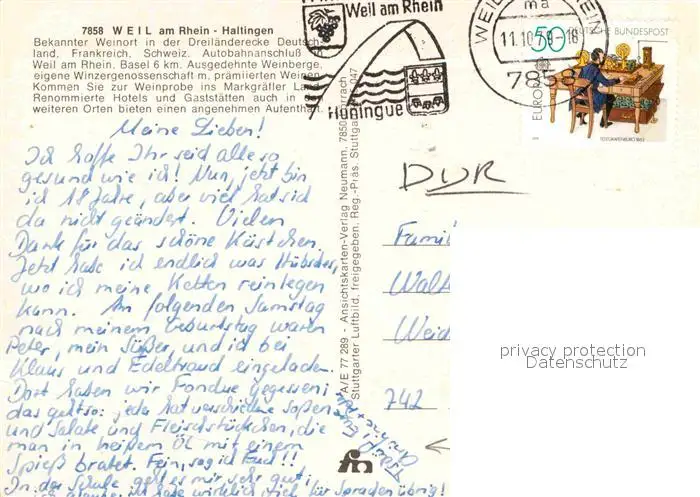 7858 WEIL am Rhein - Haltingen
Bekannter Weinort in der Dreiländerecke Deutsch-
land, Frankreich, Schweiz. Autobahnanschluß
Weil am Rhein. Basel 6 km. Ausgedehnte Weinberge,
eigene Winzergenossenschaft m. prämiierten Weinen
Kommen Sie zur Weinprobe ins Markgräfler Land
Renommierte Hotels und Gaststätten auch in
weiteren Orten bieten einen angenehmen Aufenthalt
Meine Lieben!
Ich hoffe Ihr seid alle so
gesund wie ich! Nun, jetzt bin
ich 18 Jahre, aber viel hat sich
da nicht geändert. Vielen
Dank für das schöne Kästchen.
Jetzt habe ich endlich was Hübsches,
wo ich meine Ketten reinlegen
kann. Am folgenden Samstag
nach meinem Geburtstag waren
Peter, mein Süßer, und ich bei
Klaus und Edeltraud eingeladen.
Dort haben wir Fondue gegessen;
das geht so: jeder hat verschiedene Soßen
und Salate und Fleischstückchen, die
man in heißem Öl mit einem
Spieß bratet. Fein, sag ich Euch!!
In der Schule geht es mir sehr gut,
ich glaube, ich habe wirklich für Sprachen übrig!
A/E 77 289 - Ansichtskarten-Verlag Neumann, 7850 Lörrach
Stuttgarter Luftbild, freigegeben. Reg.-Präs. Stuttgart 047
Weil am Rhein
Huningue
WEIL RHEIN
ma
11.10.79-16
7858
50
DEUTSCHE BUNDESPOST
EUROPA
TELEGRAFENBÜRO 1863
DUR
Famil
Walt
Weid
742
privacy protection
Datenschutz